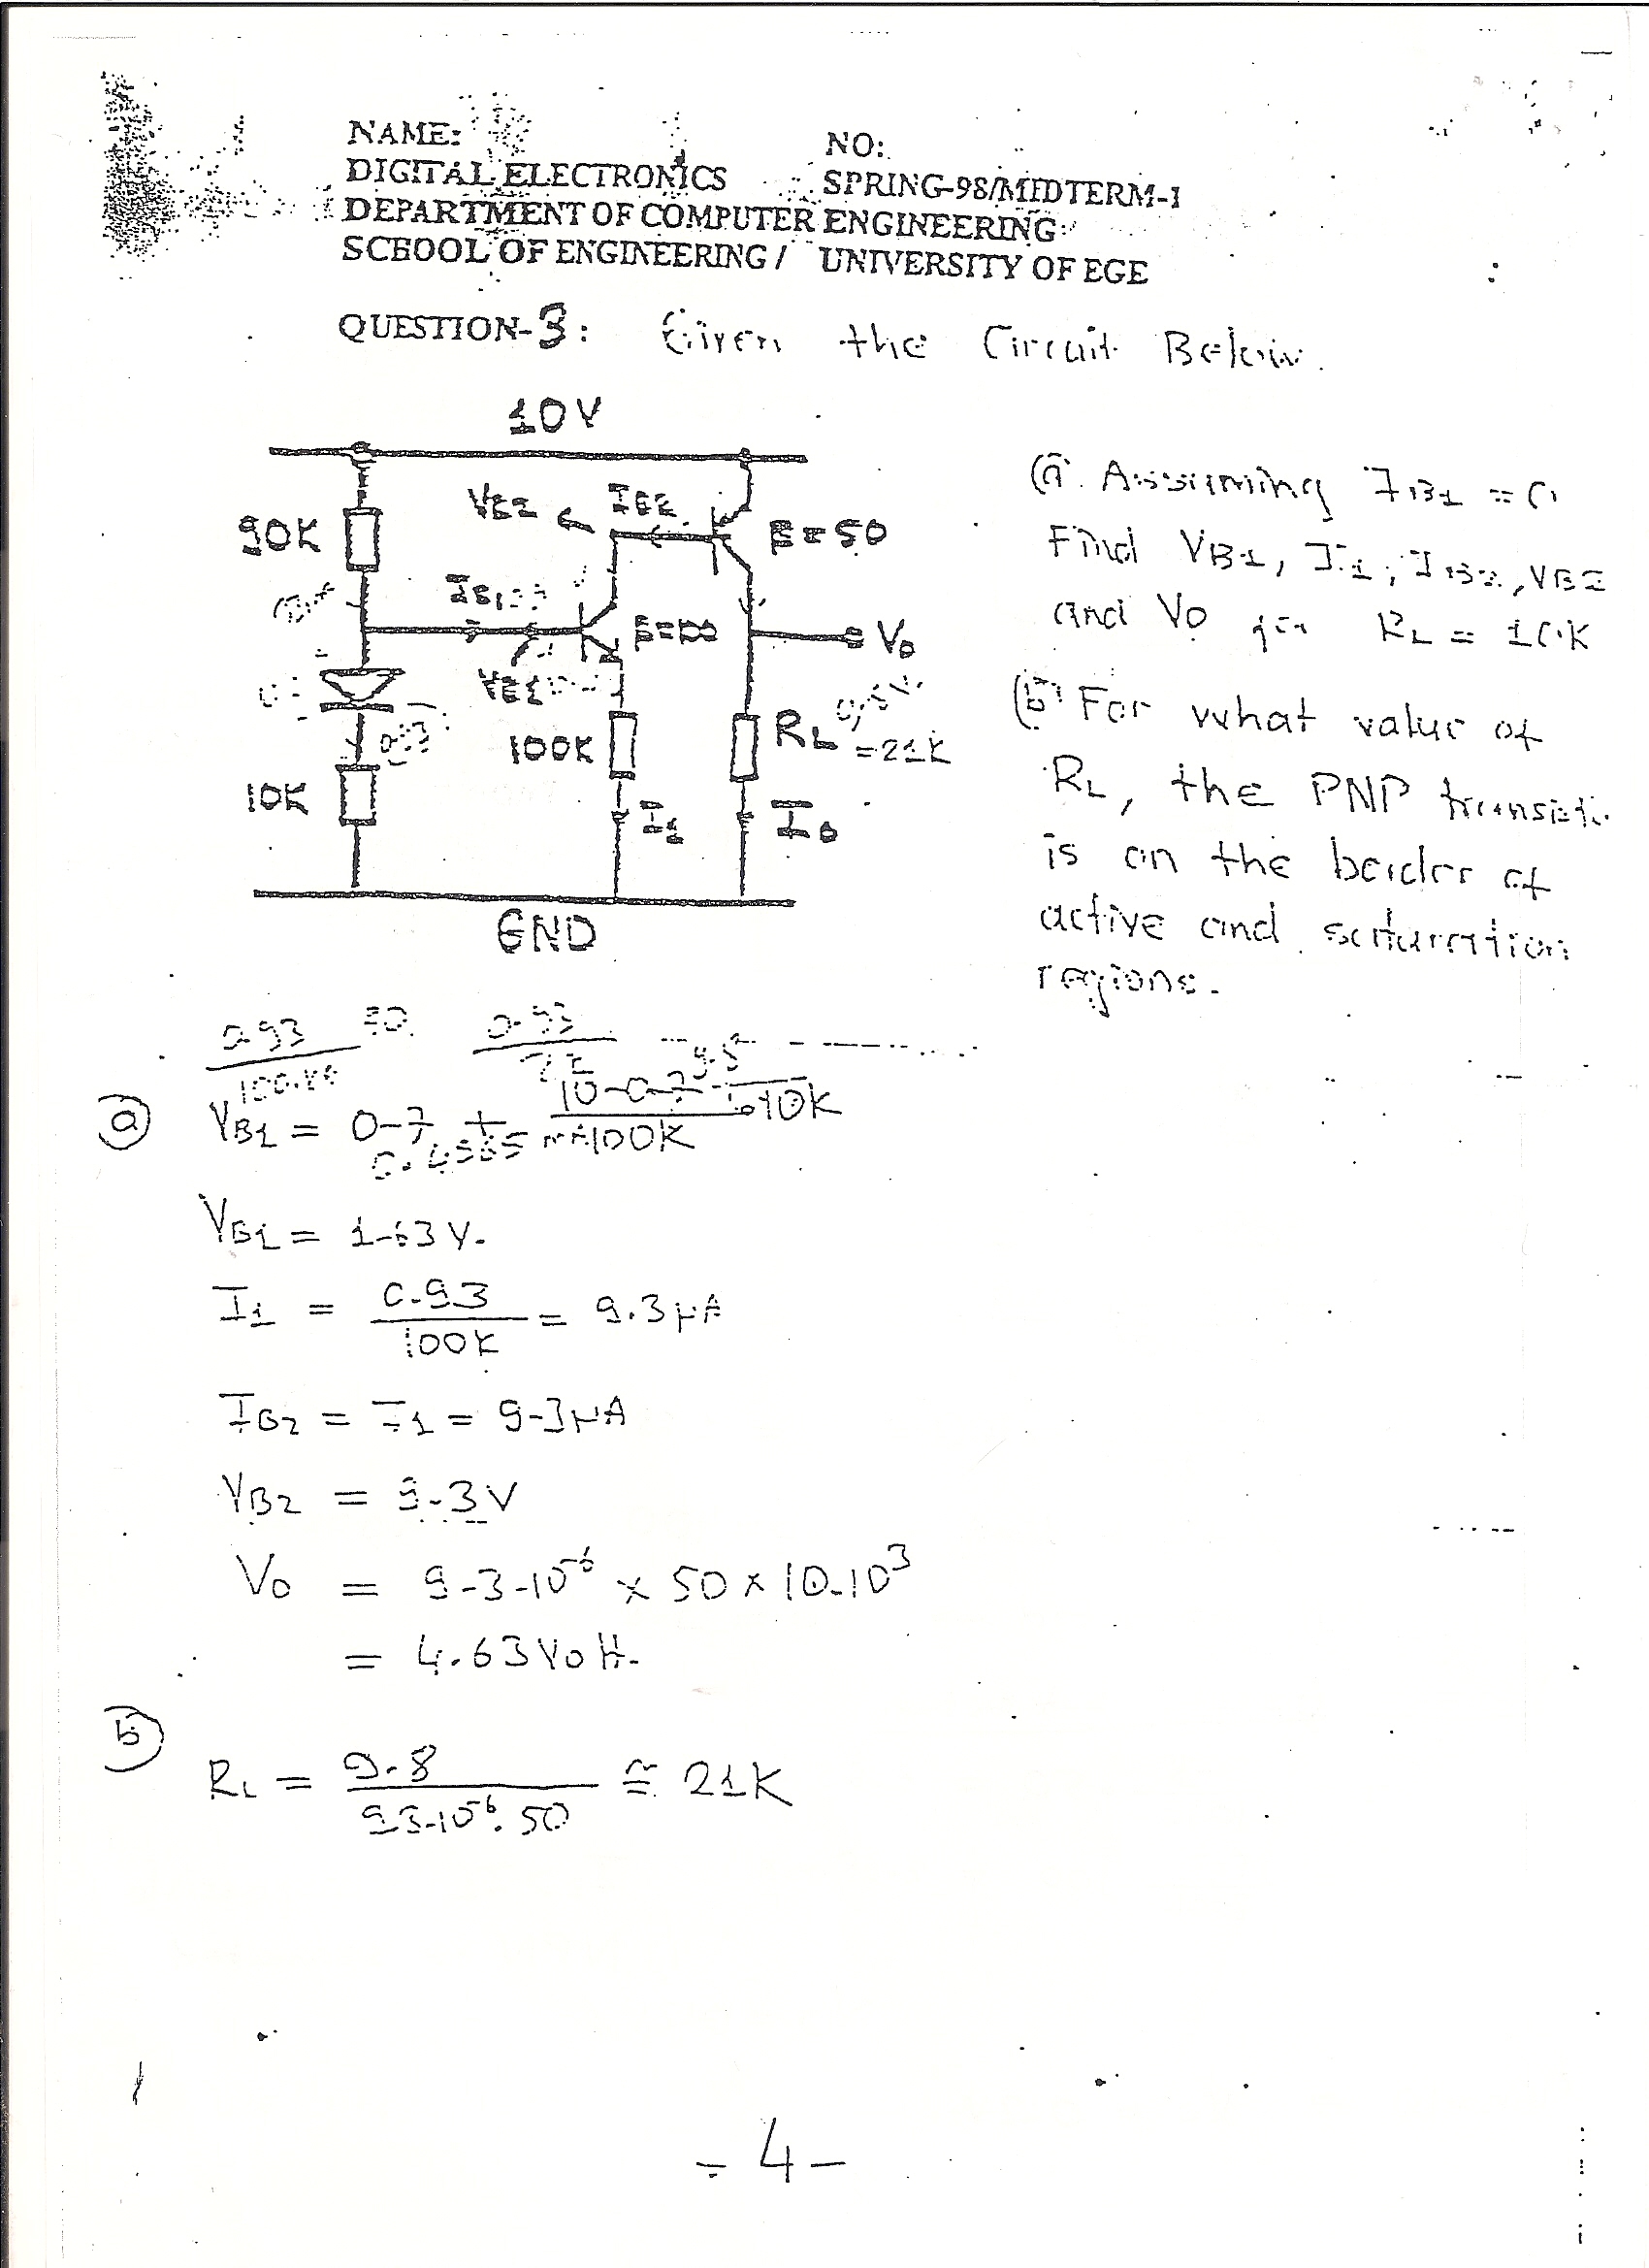 NAME: NO:
DIGITAL ELECTRONICS SPRING-98/MIDTERM-1
DEPARTMENT OF COMPUTER ENGINEERING
SCHOOL OF ENGINEERING / UNIVERSITY OF EGE
QUESTION-3: Given the Circuit Below.
10V
90K
VB2
IB2
β=50
IB1
β=∞
Vo
VB1
10K
100K
RL
=21K
I1
Io
GND
(a) Assuming IB1 = 0
Find VB1, I1, IB2, VB2
and Vo for RL = 10K
(b) For what value of
RL, the PNP
is on the border of
active and saturation
regions.
0.93
(a) VB1 = 0.7 + 10-0.7 / 100K . 10K
VB1 = 1.63 V.
I1 = 0.93 / 100K = 9.3 μA
IB2 = I1 = 9.3 μA
VB2 = 9.3 V
Vo = 9.3.10⁻⁶ × 50 × 10.10³
= 4.63 Volt.
(b)
RL = 9.8 / 9.3.10⁻⁶.50 ≅ 21K
-4-